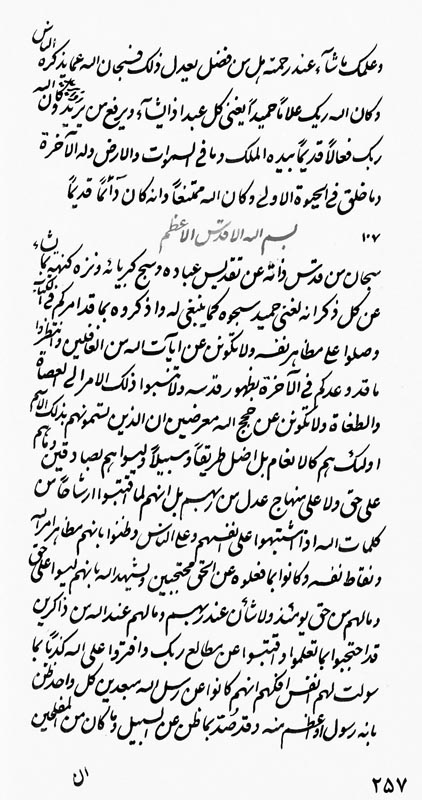 وعلمك ما شآء عند رحمته هل من فضل يعدل ذلك فسبحان الله عما يذكره الناس
وكان الله ربك علاماً حميداً يغني كل عبد اذا يشآء ويرفع من يريد وكان الله
ربك فعالاً قديماً بيده الملك وما في السموات والارض وله الآخرة
وما خلق في الحيوة الاولى وكان الله ممتنعاً وانه كان دآئماً قديماً
١٠٧ بسم الله الاقدس الاعظم
سبحان من قدس ذاته عن تقديس عباده وسبح كبريائه ونزه كنهيته بما شآء
عن كل ذكر انه لغني حميد سبحوه كما ينبغي له واذكروه بما قد امركم في الكتاب
وصلوا على مظاهر نفسه ولا تكونن عن ايات الله من الغافلين وانتظروا
ما قد وعدكم في الآخرة بظهور قدسه ولا تنسبوا ذلك الامر الى العصاة
والطغاة ولا تكونن عن حجج الله معرضين ان الذين يسمونهم بذلك الاسم
اولئك هم كالانعام بل اضل طريقاً وسبيلاً وليسوا هم بصادقين وما هم
على حق ولا على منهاج عدل من ربهم بل انهم لما اقتبسوا ارشاحاً من
كلمات الله اذا اشتبهوا على انفسهم وعلى الناس وظنوا بانهم مظاهر امر الله
ونقاط نفسه وكانوا بما فعلوه عن الحق محتجبين ويشهد الله بانهم ليسوا على حق
وما لهم من حق يومئذ ولا شأن عند ربهم وما لهم عند الله من ذاكرين
قد احتجبوا بما تعلموا واقتبسوا عن مطالع ربك وافتروا على الله كذباً بما
سولت لهم انفس افكهم انهم كانوا عن رسل الله مبعدين كل واحد ظن
بانه رسول او اعظم منه وقد صد بما ظن عن السبيل وما كان من المفلحين
ان
٢٥٧